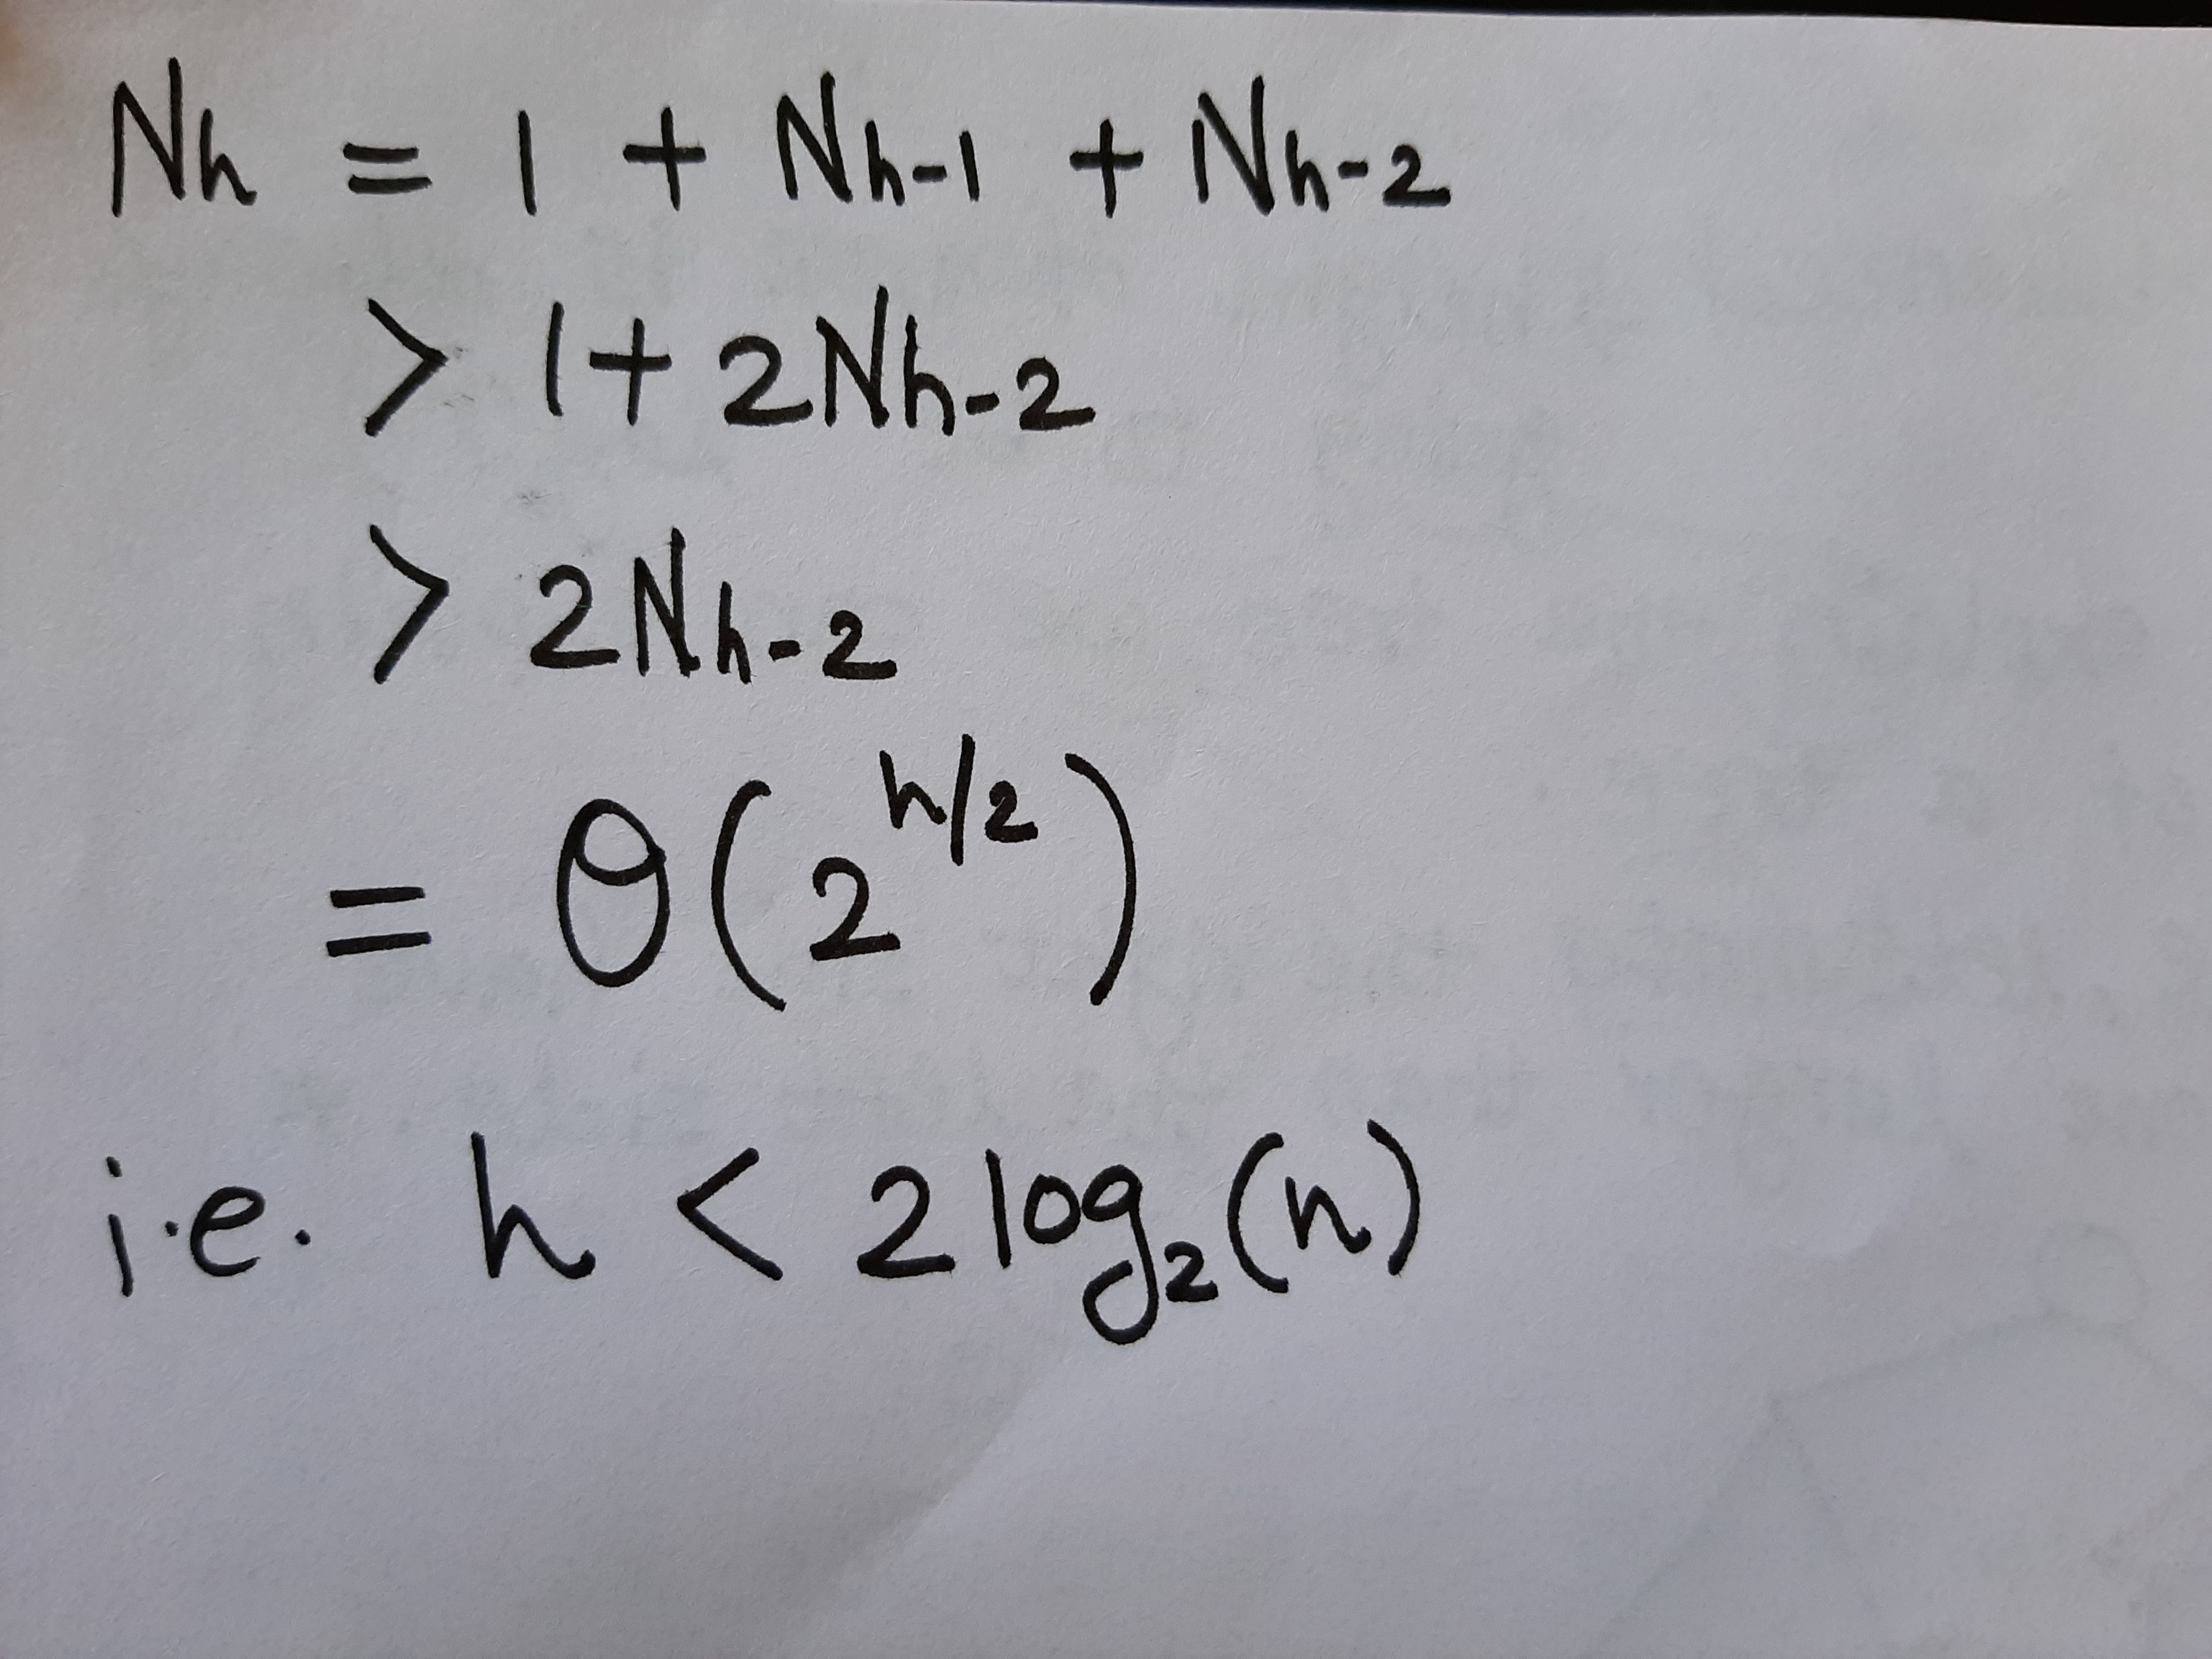 Nh = 1 + Nh-1 + Nh-2
> 1 + 2Nh-2
> 2Nh-2
= θ(2^h/2)
i.e. h < 2 log₂(n)